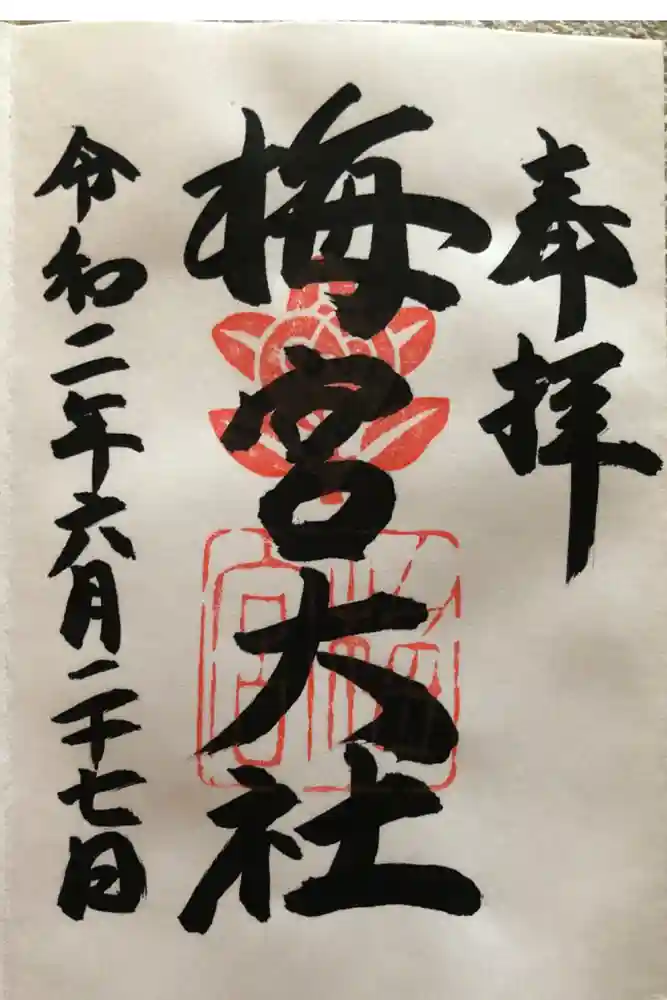 奉拝
梅宮大社
令和二年六月二十七日